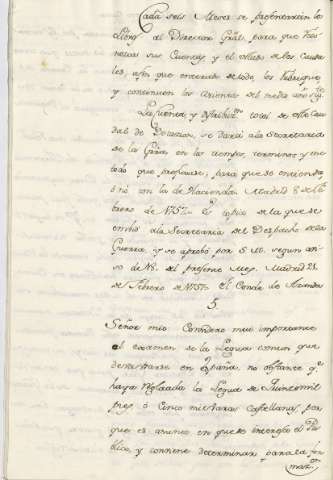 Cada seis Meses se presentarán los
Libros al Director Gral. para que
sus Cuentas, y el estado de los Cauda
les, a fin que enterado de todo, los
y continuen los Asientos del medio año sigte.
La Cuenta, y total de este Cau
dal de Dotacion, se dará a la Secretaria
de la Grra. en los tiempos, terminos y me
todo que para que se
ó nó con la de Hacienda. Madrid 8 de Fe
brero de 1757. Es copia de la que se
embió a la Secretaria del Despacho de la
Guerra, y se aprobó por S. M. segun avi
so de 18. del presente Mes. Madrid 21
de Febrero de 1757. El Conde de Aranda
5.
Señor mio. Considero mui importante
el examen de la Legua comun que
deva usarse en España, no obstante qe.
haya la Legua de Quince mil
pies, ó Cinco mil varas Castellanas, por
que es asunto en que se interesa el Pu
blico, y conviene determinar para la for
macn.